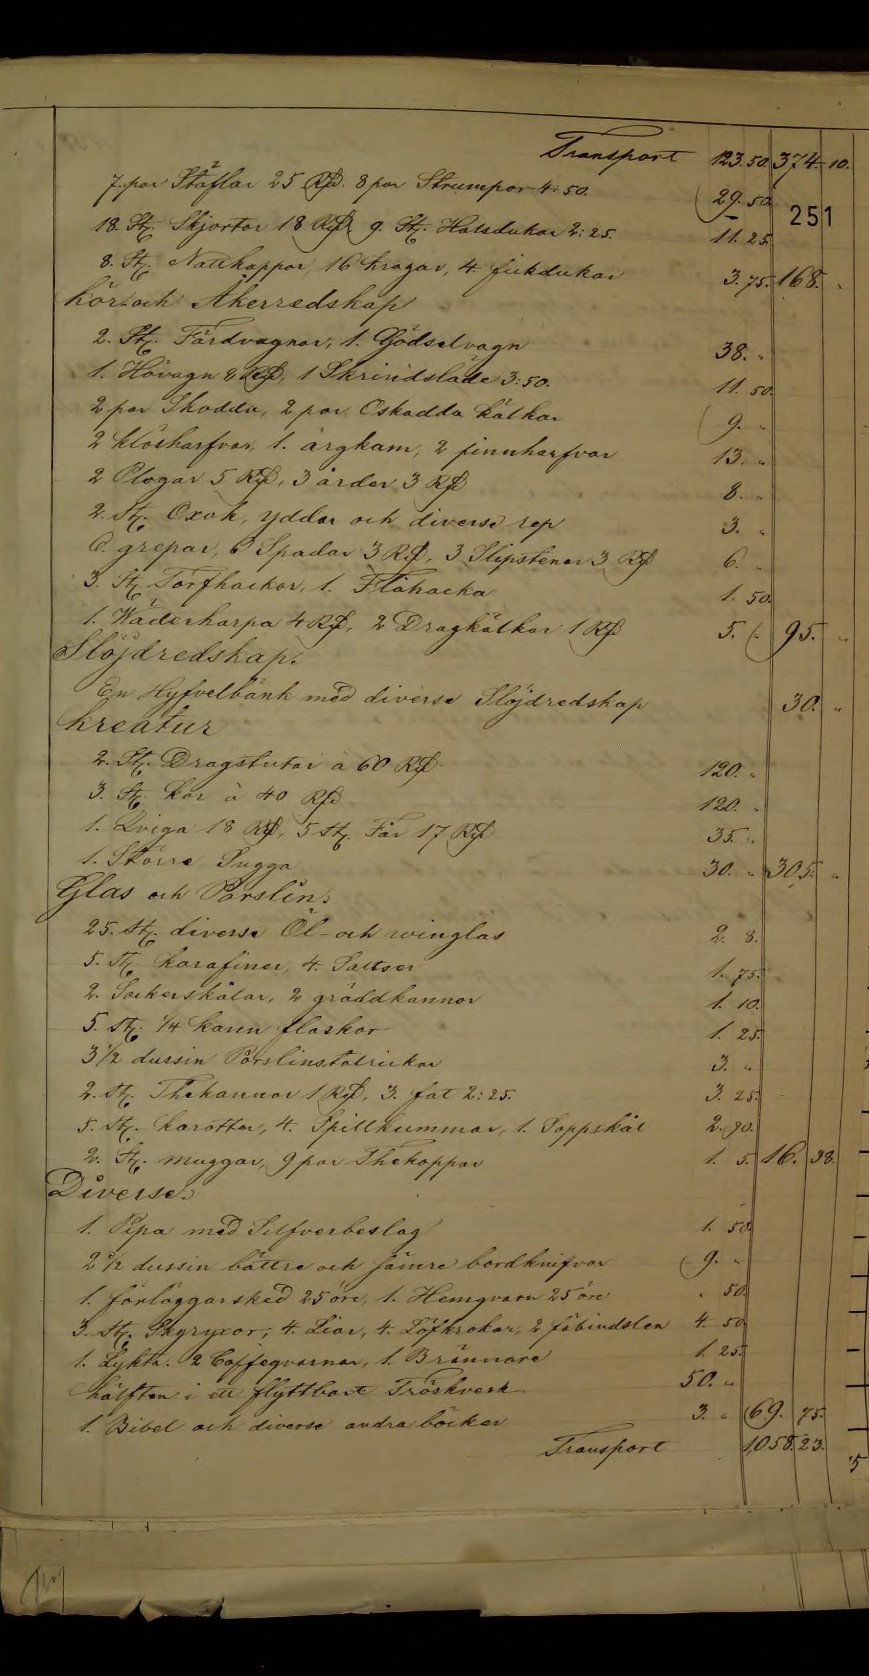 Transport 123.50. 374. 10.
7. par Stöflar 25 Rd. 8 par Strumpor 4:50. 29.50
251
18. St. Skjortor 18 Rd, 9. St. Halsdukar 2:25. 11.25
8. St. Nattkappor, 16 kragar, 4 fickdukar 3.75. 168. "
Kör och Åkerredskap
2. St. Färdvagnar, 1. Gödselvagn 38. "
1. Hövagn 8 Rd, 1 Skrindsläde 3:50. 11.50.
2 par Skodda, 2 par Oskodda Kälkar 9. "
2 klösharfvar, 1. årgkam, 2 pinnharfvar 13. "
2 Plogar 5 Rd, 3 årder 3 Rd 8. "
2. St. Oxok, yddor och diverse rep 3. "
6. grepar, 6 Spadar 3 Rd, 3 Slipstenar 3 Rd 6. "
3. St. Torfhackor, 1. Flåhacka 1.50.
1. Wäderharpa 4 Rd, 2 Dragkälkar 1 Rd 5. " 95. "
Slöjdredskap.
En Hyfvelbänk med diverse Slöjdredskap 30. "
Kreatur
2. St. Dragstutar à 60 Rd 120. "
3. St. Kor à 40 Rd 120. "
1. Qviga 18 Rd, 5 St. Får 17 Rd 35. "
1. Större Sugga 30. " 305. "
Glas och Porslin:
25. St. diverse Öl- och vinglas 2. 8.
5. St. Karafiner, 4. Saltser 1.75.
2. Sockerskålar, 2 gräddkannor 1.10.
5. St. 1/4 kann flaskor 1.25.
3 1/2 dussin Porslinstalrickar 3. "
2. St. Thekannor 1 Rd, 3. fat 2:25. 3.25.
5. St. Karotter, 4. Spillkummar, 1. Soppskål 2.90.
2. St. muggar, 9 par Thekoppar 1. 5. 16. 38.
Diverse.
1. Pipa med Silfverbeslag 1.50.
2 1/2 dussin bättre och sämre bordknifvar 9. "
1. förläggarsked 25 öre, 1. Hemqvarn 25 öre " 50.
3. St. Skyryxor, 4. Liar, 4. Löfkrokar, 2 fäbindslen 4.50
1. Lykta. 2 Caffeqvarnar, 1. Brännare 1.25.
hälften i ett flyttbart Tröskverk 50. "
1. Bibel och diverse andra böcker 3. " 69. 75.
Transport 1,058. 23.